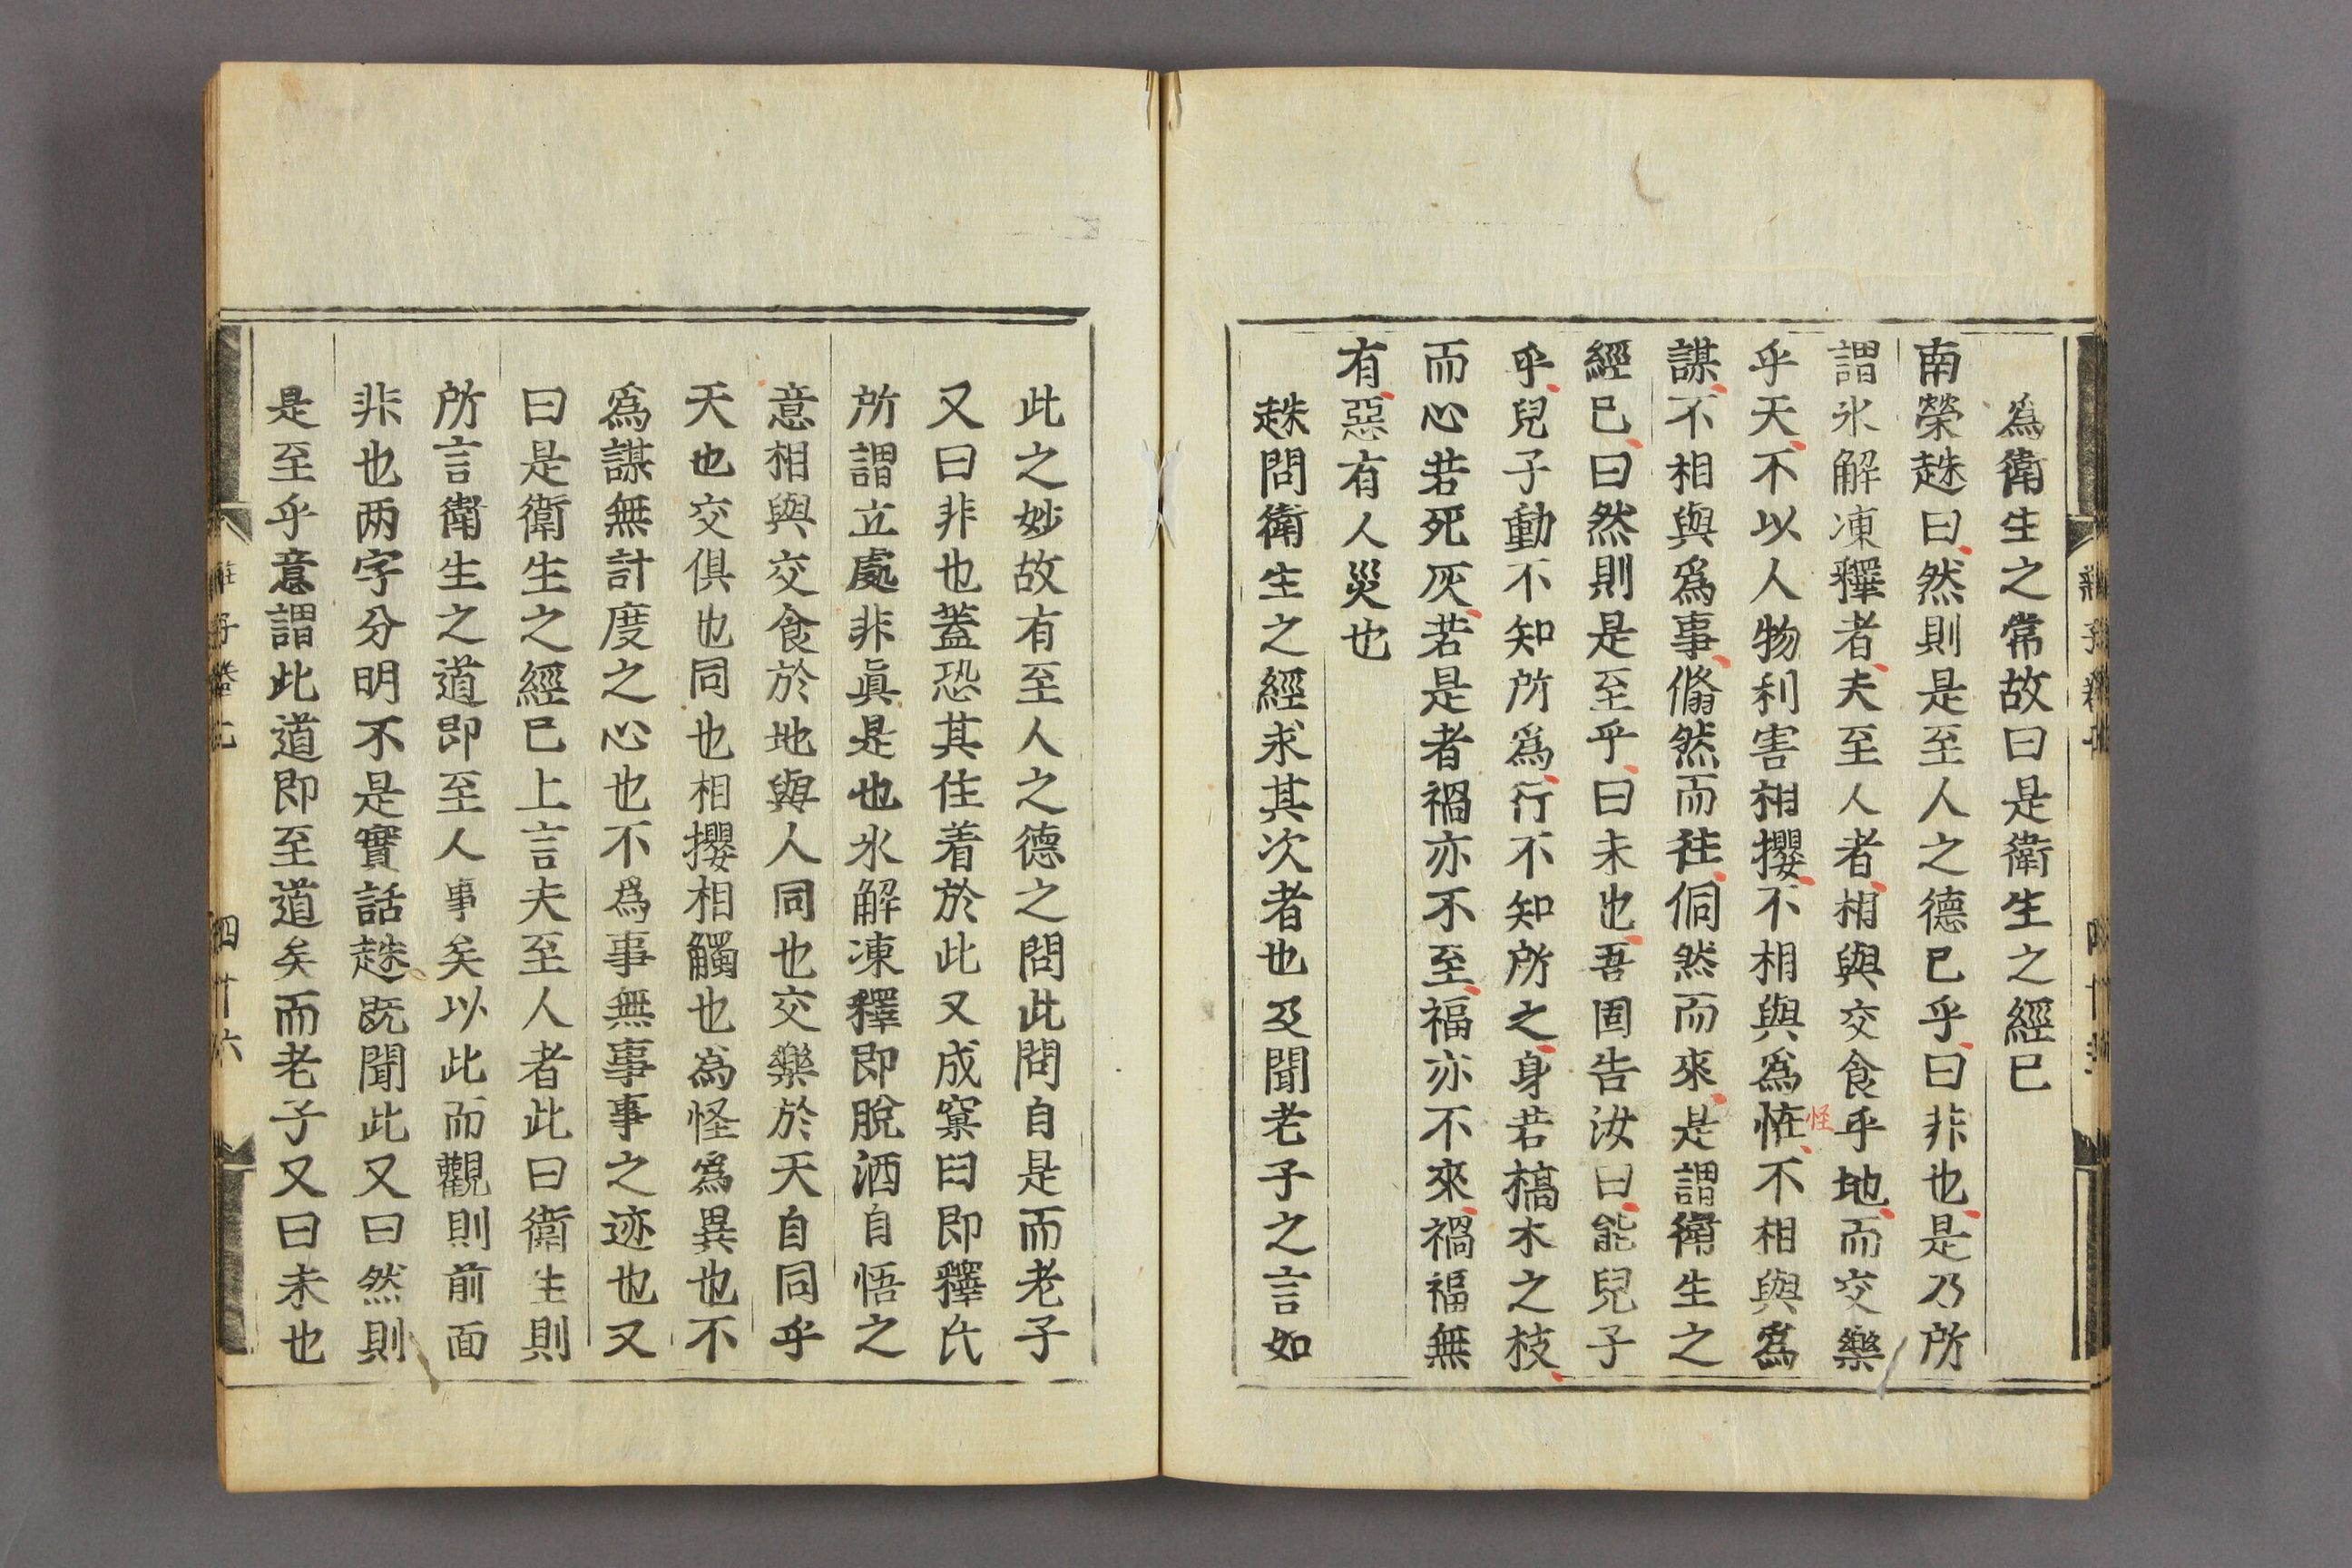 為衛生之常故曰是衛生之經已
南榮趎曰然則是至人之德已乎曰非也是乃所
謂氷解凍釋者夫至人者相與交食乎地而交樂
乎天不以人物利害相攖不相與爲恠不相與爲
怪
謀不相與爲事翛然而往侗然而來是謂衛生之
經已曰然則是至乎曰未也吾固告汝曰能兒子
乎兒子動不知所爲行不知所之身若槁木之枝
而心若死灰若是者禍亦不至福亦不來禍福無
有惡有人災也
趎問衛生之經求其次者也及聞老子之言如
此之妙故有至人之德之問此問自是而老子
又曰非也蓋恐其住着於此又成窠臼即釋氏
所謂立處非眞是也氷解凍釋即脫洒自悟之
意相與交食於地與人同也交樂於天自同乎
天也交俱也同也相攖相觸也為怪爲異也不
爲謀無計度之心也不爲事無事事之迹也又
曰是衛生之經已上言夫至人者此曰衛生則
所言衛生之道即至人事矣以此而觀則前面
非也两字分明不是實話趎既聞此又曰然則
是至乎意謂此道即至道矣而老子又曰未也
四十六